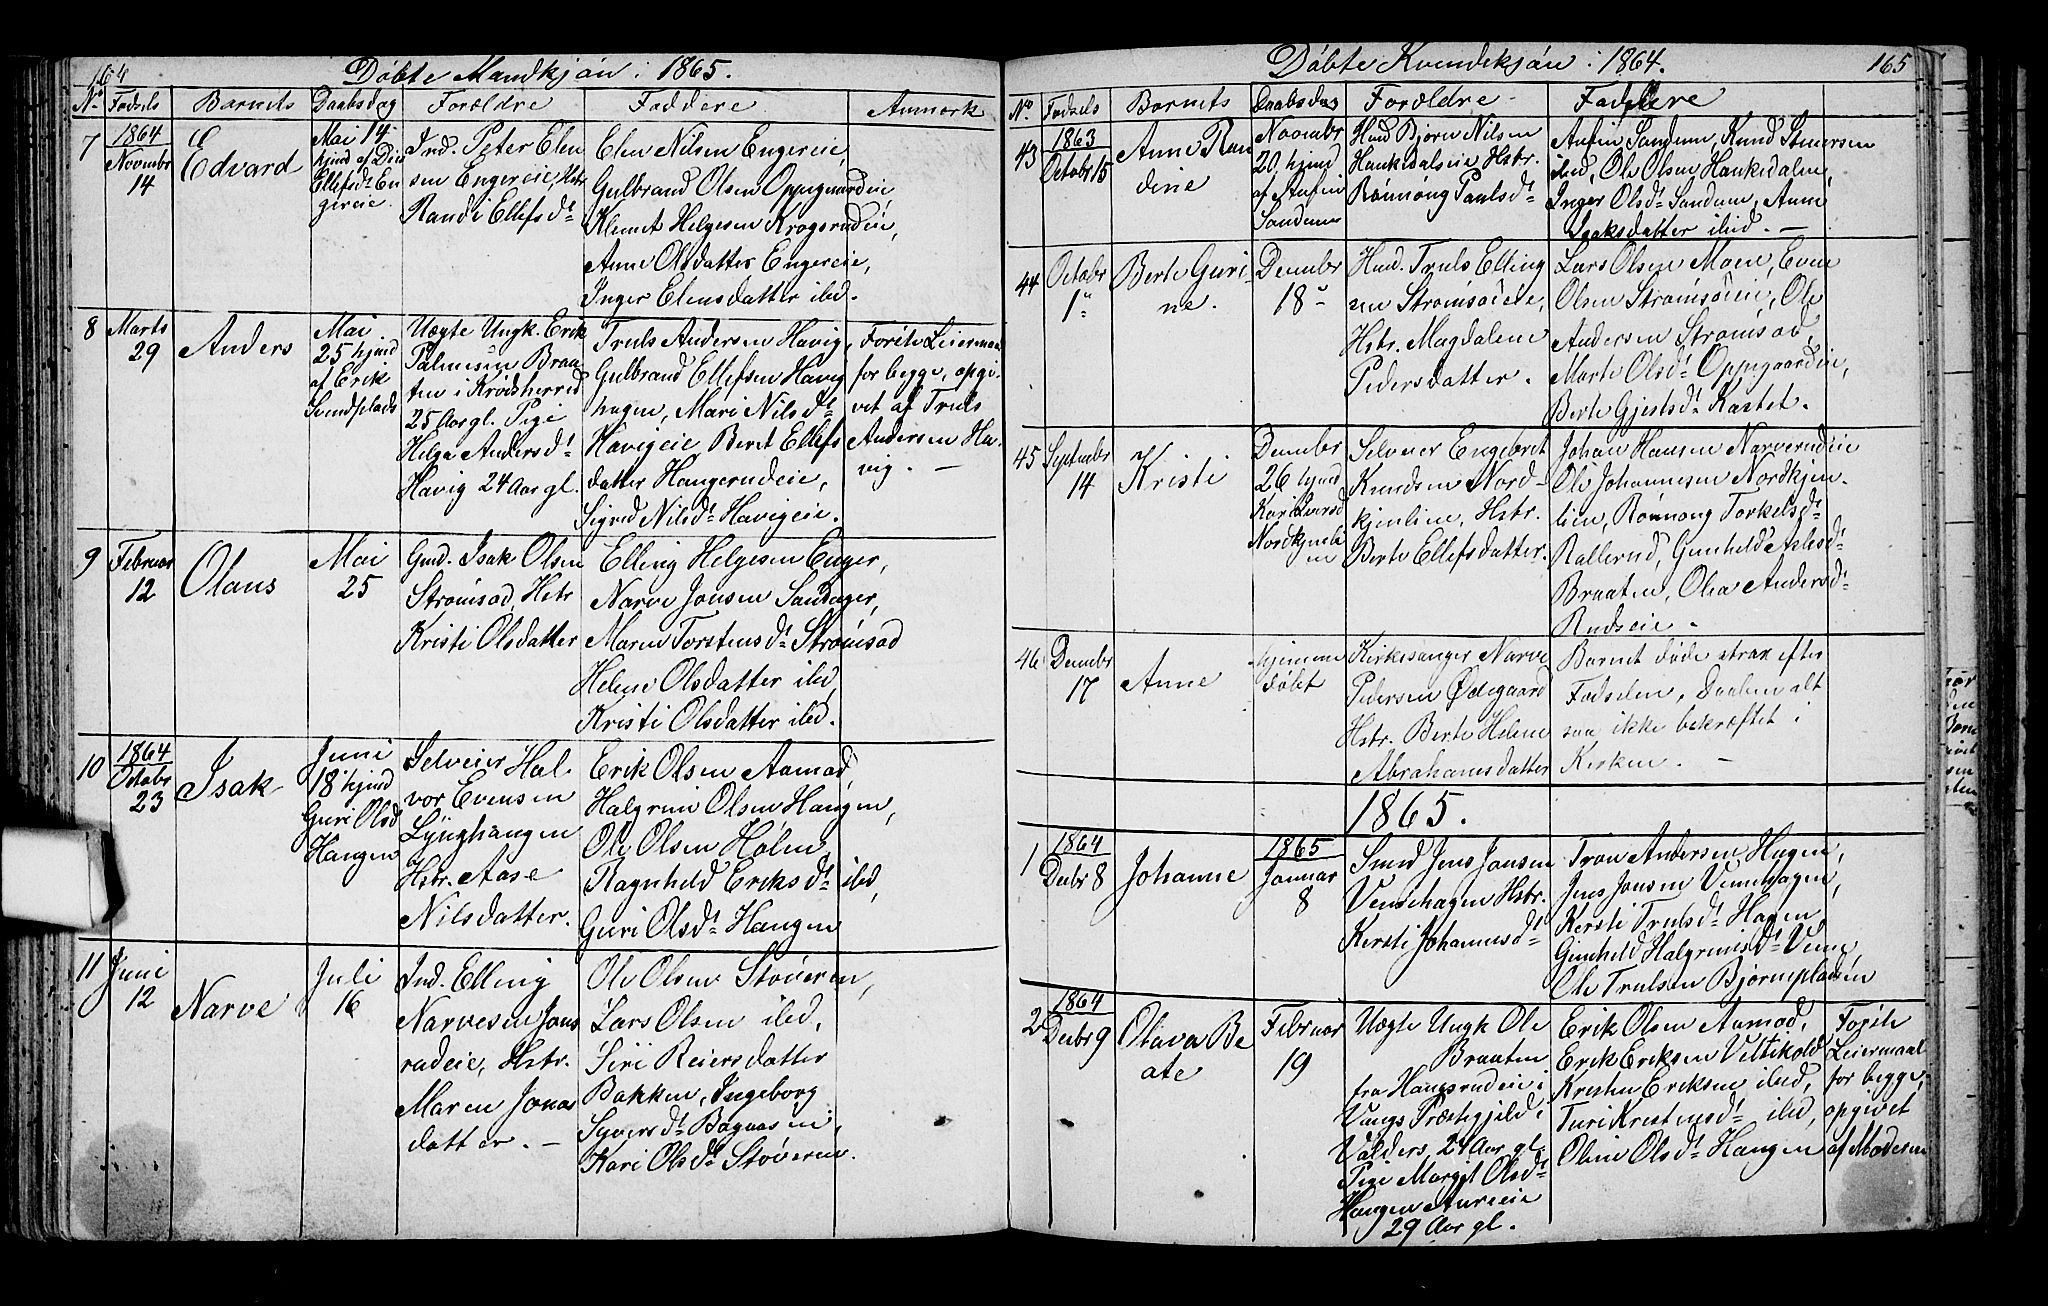 164
Döbte Mandkjön i 1865.
No Fødsels Barnets Daabsdag Forældre Faddere Anmærk
7
1864
Novembr
14
Edvard
Mai 14
hjmd af
Ellefsdt En
gereie
Ind. Peter Elen
sen Engereie, Hstr
Randi Ellefsdt
Elen Nilsen Engereie,
Gulbrand Olsen Oppegaardeie,
Klemet Helgesen Krogsrudeie,
Anne Olsdatter Engereie,
Inger Elensdatter ibd.
8
Marts
29
Anders
Mai
25 hjmd
af Erik
Svendplads
Uægte Ungk. Erik
Palmesen Braa
ten i Krødsherred
25 Aar gl. Pige
Helga Andersdt
Havig 24 Aar gl.
Truls Andersen Havig,
Gulbrand Ellefsen Havig
hagen, Mari Nilsdt
Havigeie Beret Ellefs
datter Hangerudeie,
Sigrid Nilsdt Havigeie.
Første Leiermaal
for begge, opgi-
vet af Truls
Andersen Ha-
vig. —
9
Februar
12
Olaus
Mai
25
Gmd. Isak Olsen
Strømsod, Hstr
Kristi Olsdatter
Elling Helgesen Enger,
Narve Jonsen Sandager,
Maren Torstensdt Strömsod
Helene Olsdatter ibd,
Kristi Olsdatter ibd.
10
1864
Octobr
23
Isak
Juni
18 hjmd
Guri Olsd
Haugen
Selveier Hal
vor Evensen
Lÿnghaugen
Hstr. Aase
Nilsdatter.
Erik Olsen Aamod
Halgrim Olsen Haugen,
Ole Olsen Hølen,
Ragnhild Eriksdt ibd,
Guri Olsdt Haugen
11
Juni
12
Narve
Juli
16
Ind. Elling
Narvesen Jons
rudeie, Hstr.
Maren Jonas
datter. —
Ole Olsen Støveren,
Lars Olsen ibd,
Siri Reiersdatter
Bakken, Ingeborg
Syversdt Bagaasen,
Kari Olsdt Støveren.
Döbte Kvindekjön i 1864.
165
No. Fødsels Barnets Daabsdag Forældre Faddere
43
1863
Octobr 15
Anne Ran
dine
Novembr
20, hjmd
af Anfin
Sandum
Hmd Bjørn Nilsen
Hauksdaleie Hstr.
Rønnong Paulsdt
Anfin Sandum, Knud Stenersen
ibd, Ole Olsen Hauksdalen,
Inger Olsdt Sandum, Anne
Isaksdatter ibid. —
44
Octobr
1
Berte Guri-
ne.
Decembr
18
Hmd. Truls Elling
sen Strømsodeie,
Hstr. Magdalene
Pedersdatter.
Lars Olsen Moen, Even
Olsen Strømsodeie, Ole
Andersen Strømsod,
Marte Olsdt Oppegaardeie,
Berte Gjestsdt Kastet.
45
Septembr
14
Kristi
Decembr
26 hjmd
Kari Larsd
Nordkjenli
en
Selveier Engebret
Knudsen Nord-
kjenlien, Hstr.
Berte Ellefsdatter.
Johan Hansen Narverudeie
Ole Johannesen Nordkjen-
lien, Rønnong Torkelsdt
Rallerud, Gunhild Aslesdt
Braaten, Olea Andersdt
Rudseie.
46
Decembr
17
Anne
hjemme
døbt
Kirkesanger Narve
Pedersen Ødegaard
Hstr. Berte Helene
Abrahamsdatter
Barnet døde strax efter
Fødselen, Daaben alt
saa ikke bekræftet i
Kirken. —
1865.
1
1864
Decbr 8
Johanne
1865
Januar
8
Smed Jens Jonsen
Vensehagen Hstr.
Kersti Johannesdt
Tron Andersen Hagen,
Jens Jonsen Vennehagen,
Kersti Trulsdt Hagen,
Gunhild Halgrimsdt Venne
Ole Trulsen Bjørnepladsen
2
1864
Decbr 9
Olava Be
ate
Februar
19
Uægte Ungk Ole
Braaten
fra Haugsrudeie i
Vangs Præstegjeld i
Valders, 24 Aar gl.
Pige Margit Olsdt
Haugen Aureeie
29 Aar gl.
Erik Olsen Aamod,
Erik Eriksen Veltikold
Kristen Eriksen ibid,
Turi Kristensdt ibid,
Oline Olsdt Haugen
Første
Leiermaal
for begge,
opgivet
af Moderen